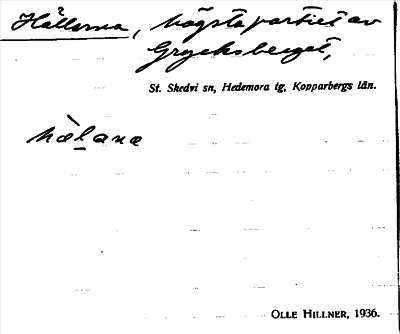 Hällorna, högsta partiet av
Grycksberget,
St. Skedvi sn, Hedemora tg, Kopparbergs län.
hὰl̲ana
OLLE HILLNER, 1936.